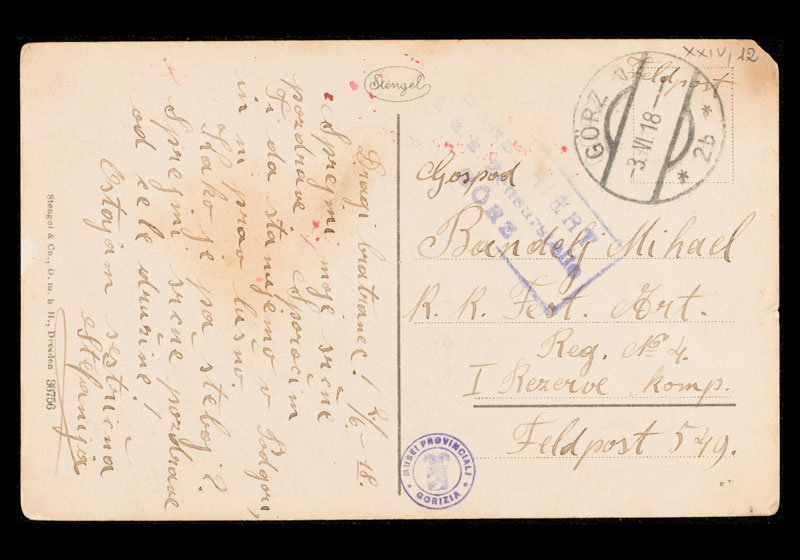 XXIV, 12
Feldpost
GÖRZ
-3.VI.18-1
* 2b *
Stengel
ZENSURIERT
GÖRZ
Dragi bratranec! 2/6.-18.
Sprejmi moje srčne
pozdrave, Sporočim
Ti da stanujemo v Podgori,
in ni prav lušno.
Kako je pa s teboj?
Sprejmi srčne pozdrave
od cele družine!
Ostajam sestrična
Stefanija
Gospod
Bandelj Mihael
K. K. Fest. Art.
Reg. No 4.
I Rezerve komp.
Feldpost 549.
MUSEI PROVINCIALI
GORIZIA
Stengel & Co., G. m. b. H., Dresden 36756